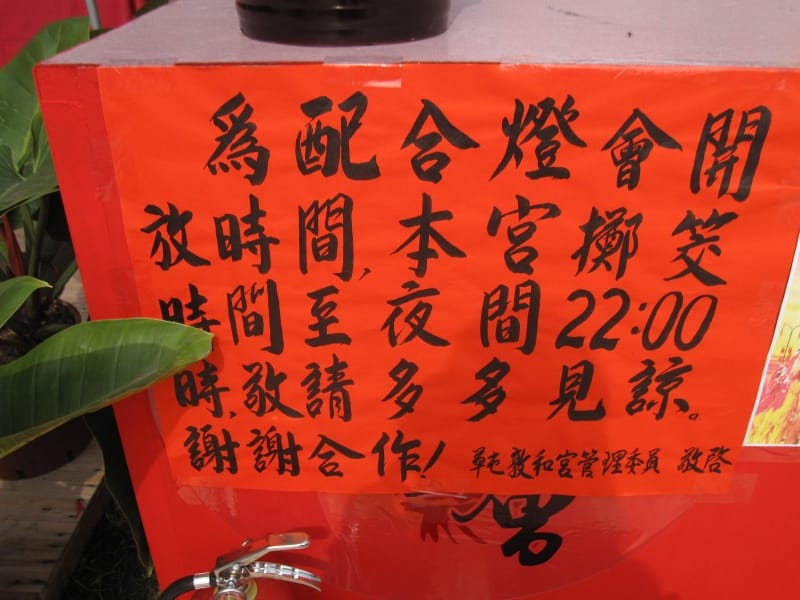 為配合燈會開
放時間,本宮擲筊
時間至夜間22:00
時,敬請多多見諒。
謝謝合作!草屯敦和宮管理委員 敬啓